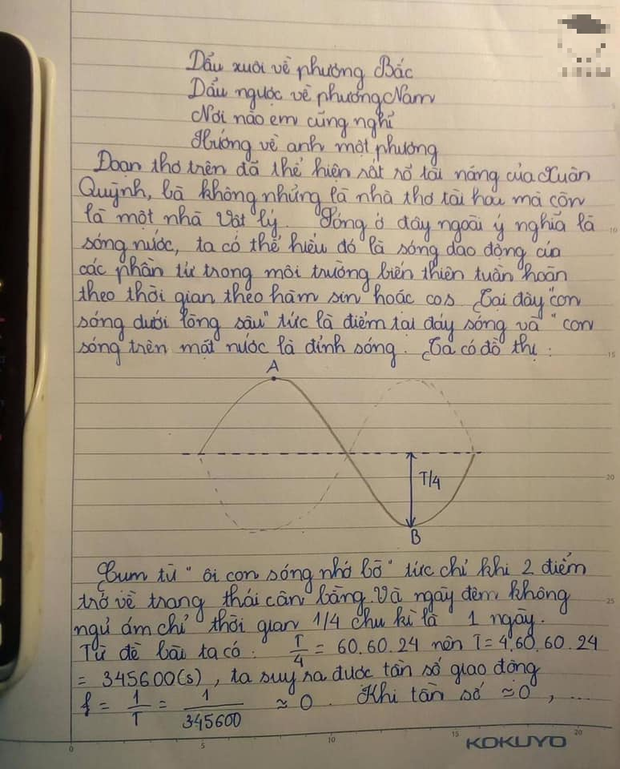 Dẩu xuôi về phương Bắc
Dẩu ngược về phương Nam
Nơi nào em cũng nghỉ
Hướng về anh một phương
Đoạn thơ trên đã thể hiện rất rõ tài năng của Xuân
Quỳnh, bà không những là nhà thơ tài hoa mà còn
là một nhà Vật lý. Sóng ở đây ngoài ý nghĩa là
sóng nước, ta có thể hiểu đó là sóng dao động của
các phần tử trong môi trường biến thiên tuần hoàn
theo thời gian theo hàm sin hoặc cos. Tại đây "con
sóng dưới lòng sâu" tức là điểm tại đáy sóng và "con
sóng trên mặt nước là đỉnh sóng. Ta có đồ thị:
A
T/4
B
Cụm từ "ôi con sóng nhớ bờ" tức chỉ khi 2 điểm
trở về trạng thái cân bằng. Và ngày đêm không
ngủ ám chỉ thời gian 1/4 chu kì là 1 ngày.
Từ đề bài ta có: T/4 = 60.60.24 nên T = 4.60.60.24
= 345600(s), ta suy ra được tần số giao động
f = 1/T = 1/345600 ≈ 0. Khi tần số ≈ 0, ...
10
15
20
25
0 5 10 15 20
KOKUYO